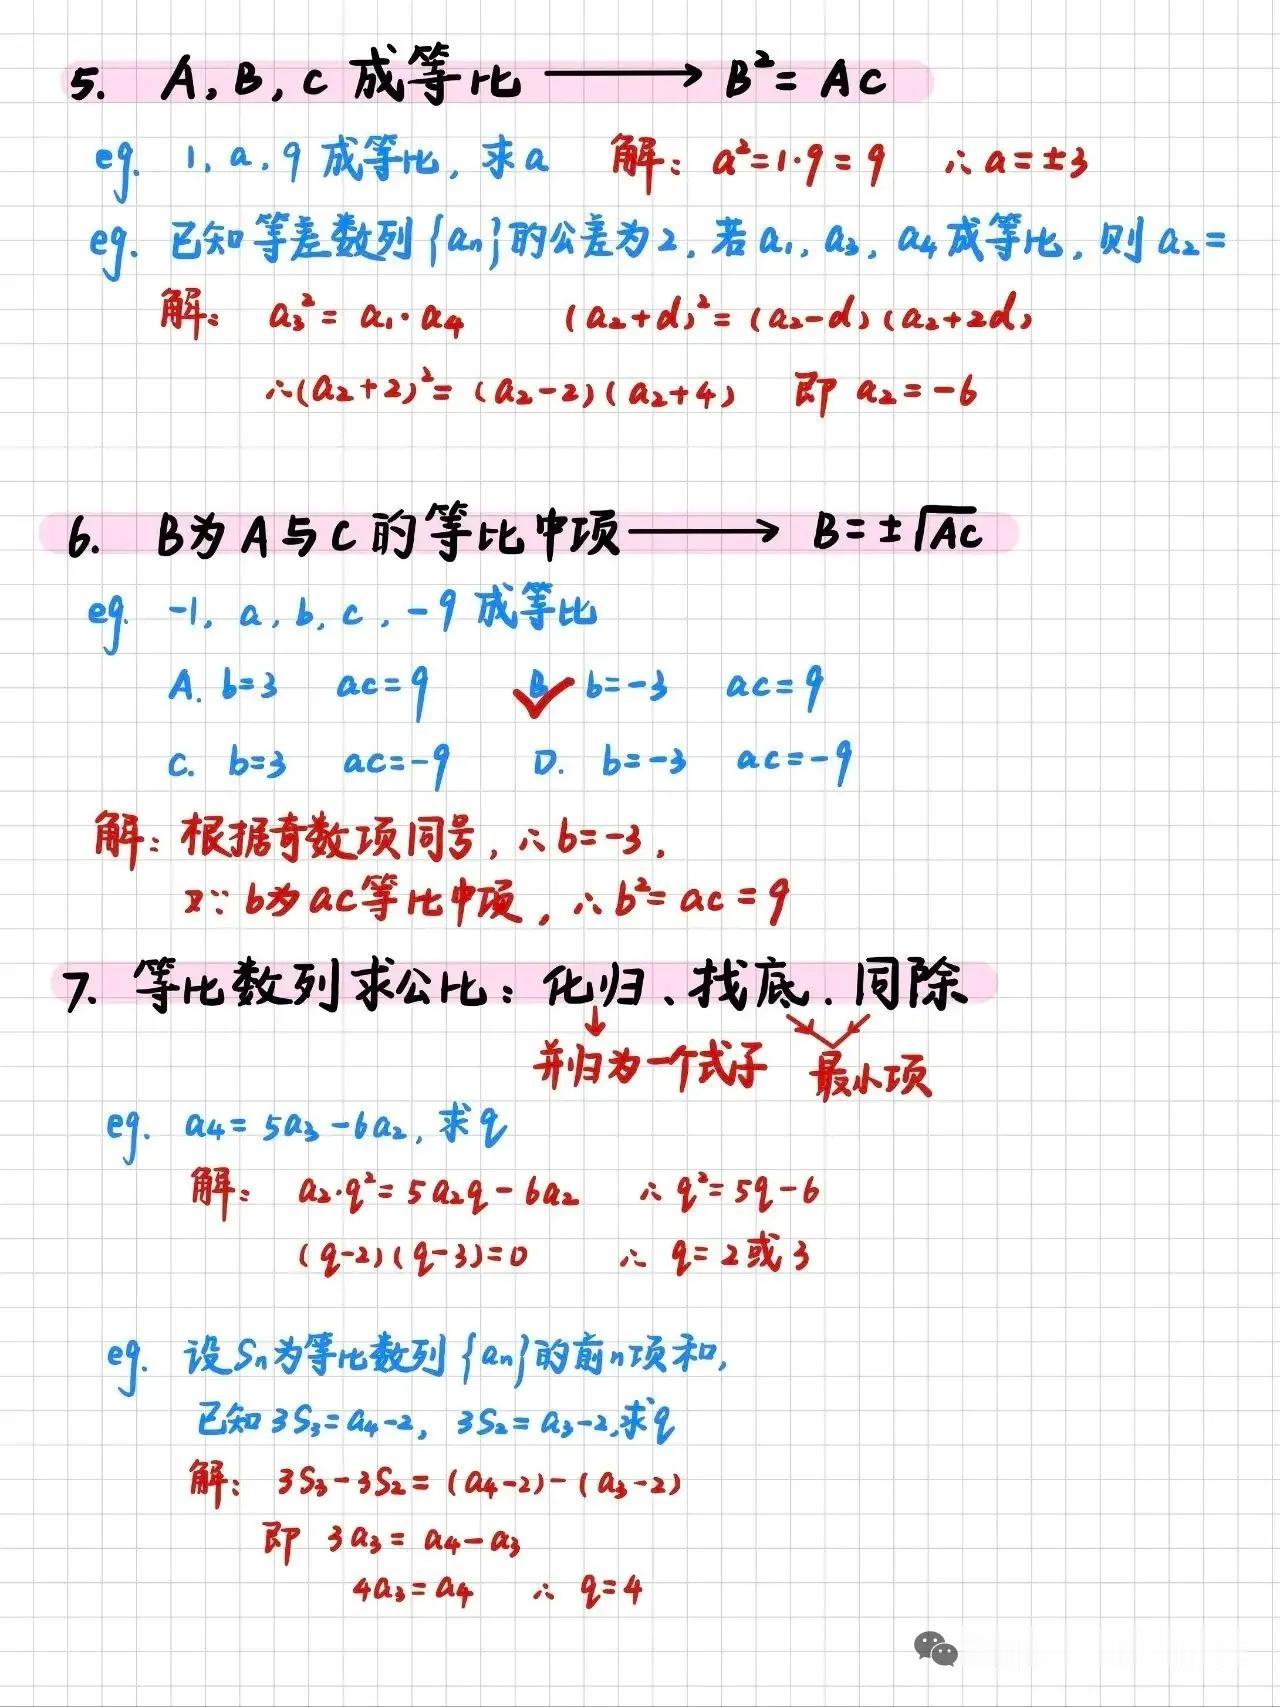 5. A, B, C 成等比 ⟶ B²= AC
eg. 1, a, 9 成等比, 求a 解: a²=1·9=9 ∴a=±3
eg. 已知等差数列{an}的公差为2, 若a₁, a₃, a₄成等比, 则a₂=
解: a₃²= a₁·a₄ (a₂+d)²=(a₂-d)(a₂+2d)
∴(a₂+2)²=(a₂-2)(a₂+4) 即 a₂=-6
6. B为A与C的等比中项 ⟶ B=±√AC
eg. -1, a, b, c, -9 成等比
A. b=3 ac=9 B b=-3 ac=9
C. b=3 ac=-9 D. b=-3 ac=-9
解: 根据奇数项同号, ∴b=-3,
又∵ b为ac等比中项, ∴b²=ac=9
7. 等比数列求公比: 化归、找底、同除
并归为一个式子 最小项
eg. a₄=5a₃-6a₂, 求q
解: a₂·q²=5a₂q-6a₂ ∴q²=5q-6
(q-2)(q-3)=0 ∴ q=2或3
eg. 设Sn为等比数列{an}的前n项和,
已知3S₃=a₄-2, 3S₂=a₃-2,求q
解: 3S₃-3S₂=(a₄-2)-(a₃-2)
即 3a₃=a₄-a₃
4a₃=a₄ ∴ q=4